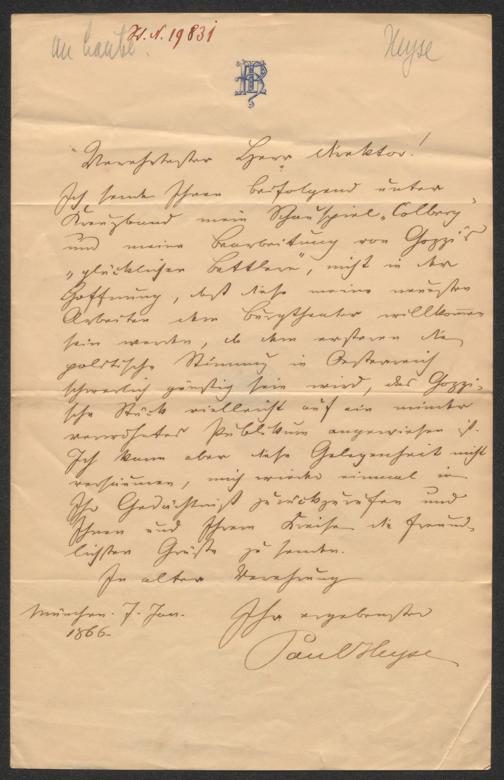 an Laube.
H. N. 19831
Heyse
Verehrtester Herr Direktor!
Ich sende Ihnen beifolgend unter
Kreuzband mein Schauspiel „Colberg“
und meine Bearbeitung von Gozzi's
„glücklichen Bettlern“, nicht in der
Hoffnung, daß diese meine neuesten
Arbeiten dem Burgtheater willkommen
sein werden, da dem ersteren die
politische Stimmung in Oesterreich
schwerlich günstig sein wird, das Gozzi-
sche Stück vielleicht auf ein minder
verwöhntes Publikum angewiesen ist.
Ich kann aber diese Gelegenheit nicht
versäumen, mich wieder einmal in
Ihr Gedächtniß zurückzurufen und
Ihnen und Ihrem Kreise die freund-
lichsten Grüße zu senden.
In alter Verehrung
Ihr ergebenster
München. 7. Jan.
1866.
Paul Heyse